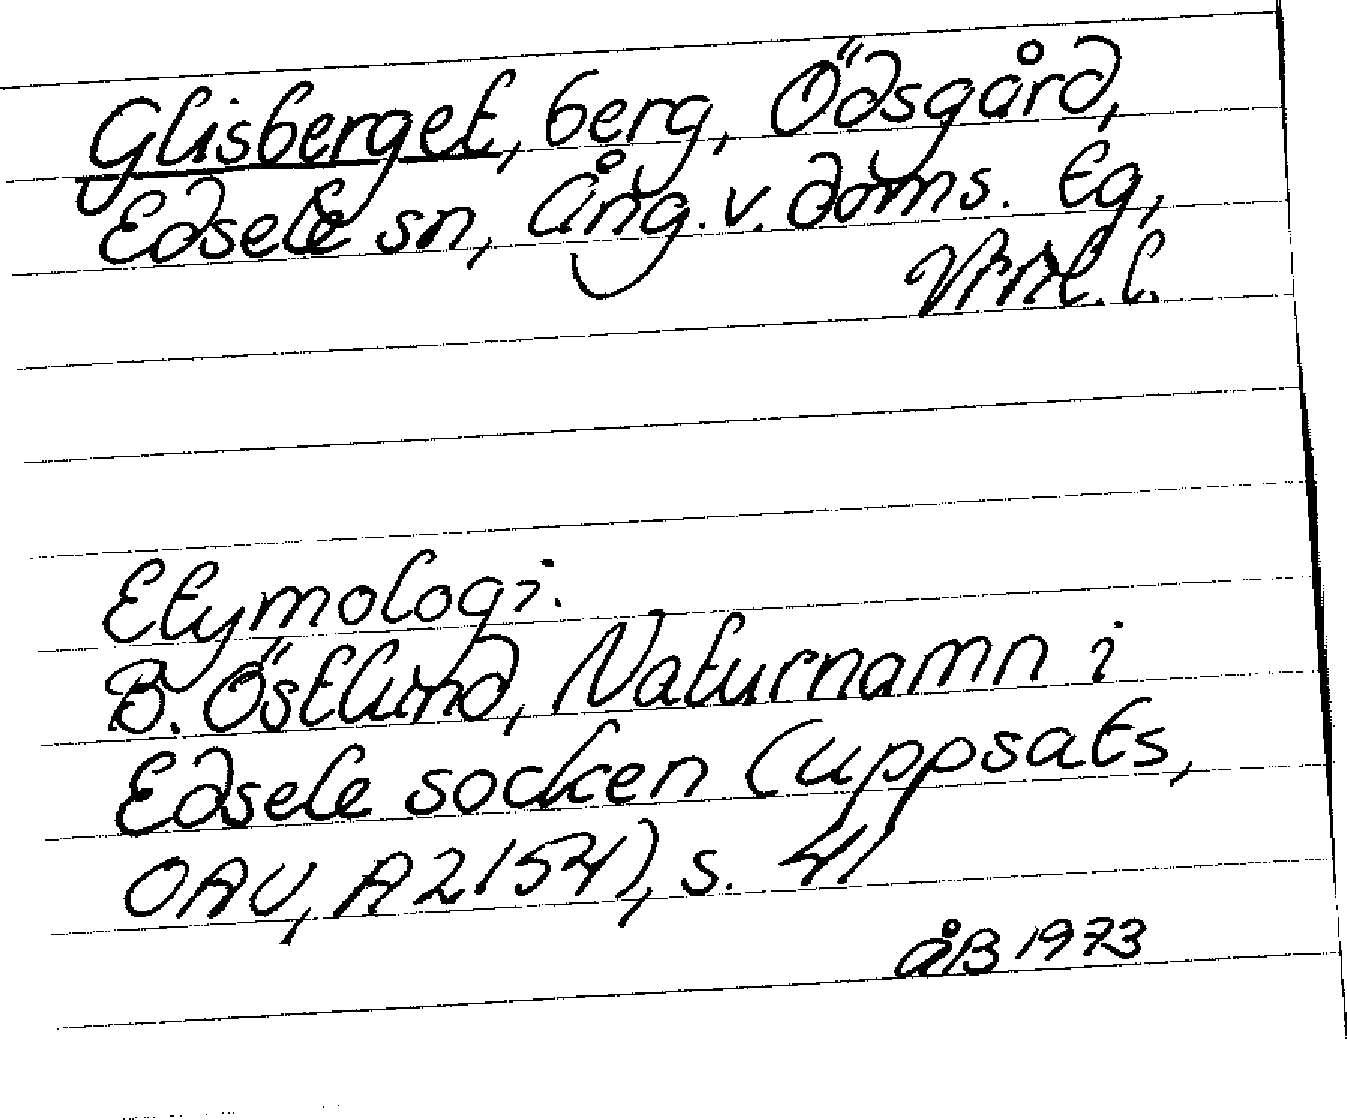 Glisberget, berg, Ödsgård,
Edsele sn, Ång. v. doms. tg,
Vrnl. l.
Etymologi:
B. Östlund, Naturnamn i
Edsele socken (uppsats,
OAU, A2154), s. 41
ÅB 1973